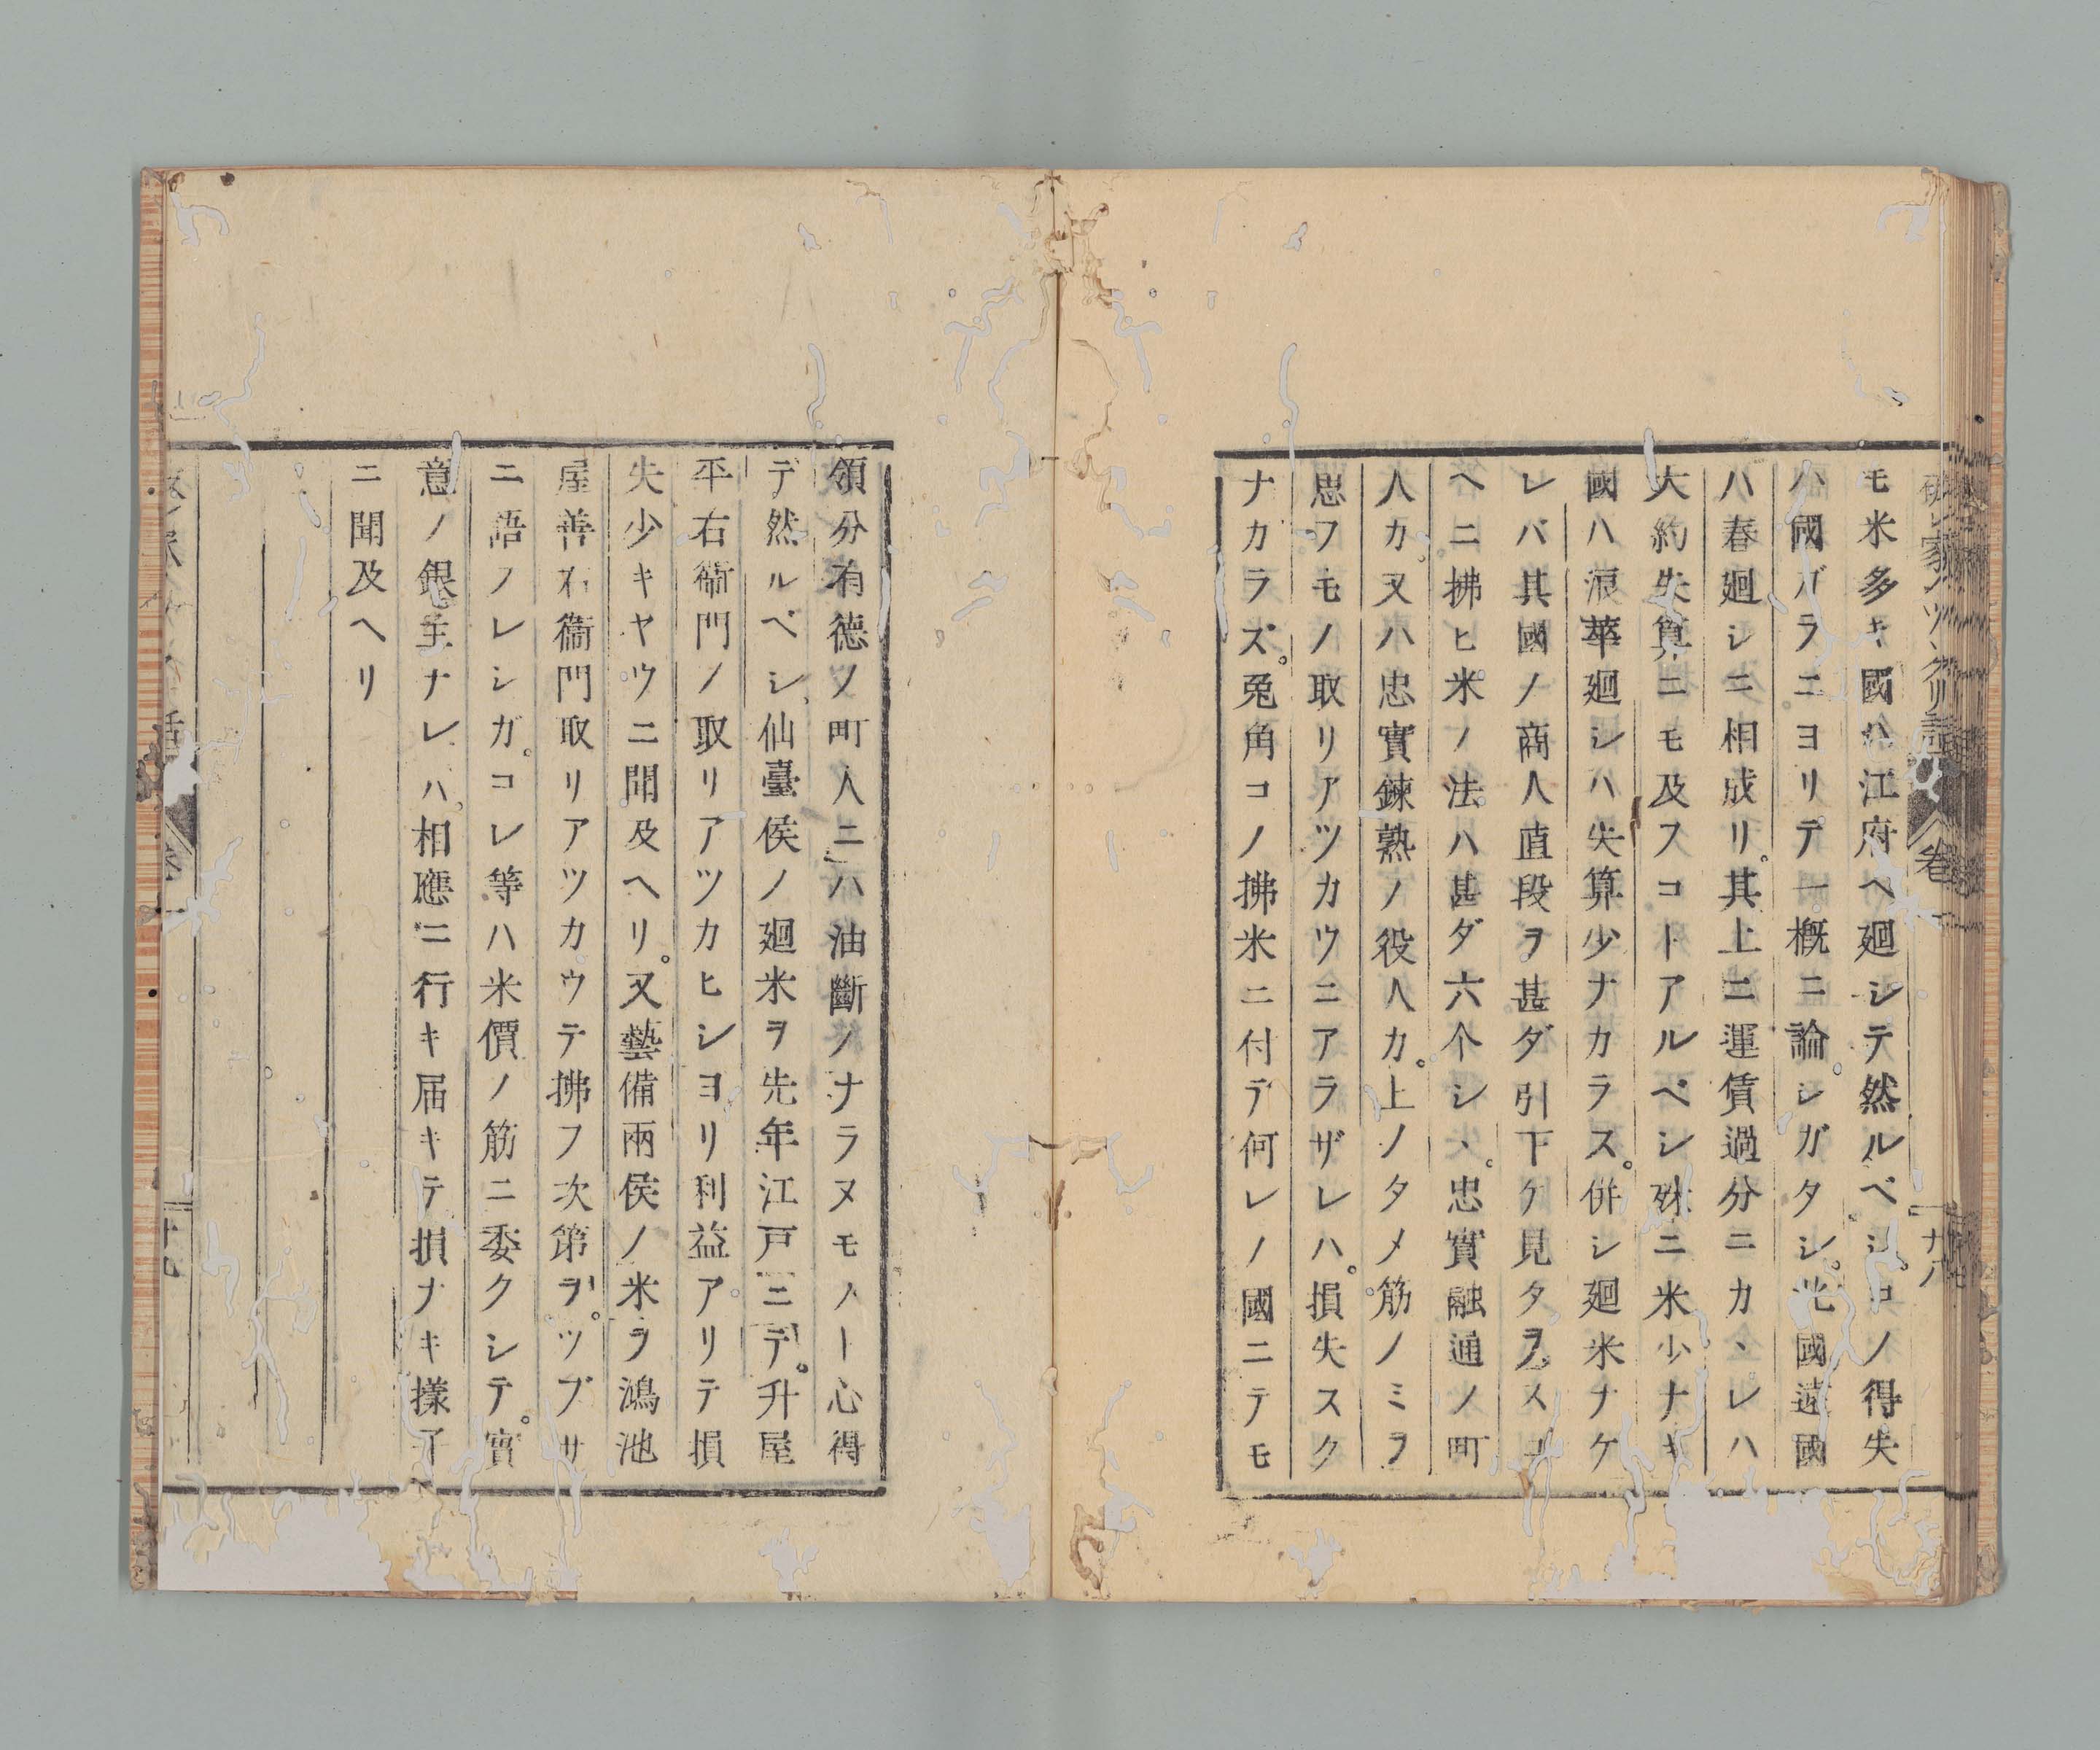 破レ家ノツヽクリ話 巻
十八
モ米多キ國ハ江府ヘ廻シテ然ルベシ。コノ得失
ハ國ガラニヨリテ一概ニ論シガタシ。北國遠國
ハ春廻シニ相成リ。其上ニ運賃過分ニカヽレハ
大約失算ニモ及スコトアルベシ殊ニ米少ナキ
國ハ浪華廻シハ失算少ナカラス。併シ廻米ナケ
レバ其國ノ商人直段ヲ甚ダ引下ケ見タヲスユ
ヘニ拂ヒ米ノ法ハ甚ダ六个シヽ。忠實融通ノ町
人カ。又ハ忠實鍊熟ノ役人カ。上ノタメ筋ノミヲ
思フモノ取リアツカウニアラザレハ。損失スク
ナカラズ。兎角コノ拂米ニ付デ何レノ國ニテモ
領分有德ノ町人ニハ油斷ノナラヌモノト心得
デ然ルベシ、仙臺侯ノ廻米ヲ先年江戸ニテ。升屋
平右衞門ノ取リアツカヒシヨリ利益アリテ損
失少キヤウニ聞及ヘリ。又藝備兩侯ノ米ヲ鴻池
屋善右衞門取リアツカウテ拂フ次第ヲ。ツブサ
ニ語ノレシガ。コレ等ハ米價ノ筋ニ委クシテ。實
意ノ銀主ナレハ。相應ニ行キ届キテ損ナキ㨾子
ニ聞及ヘリ